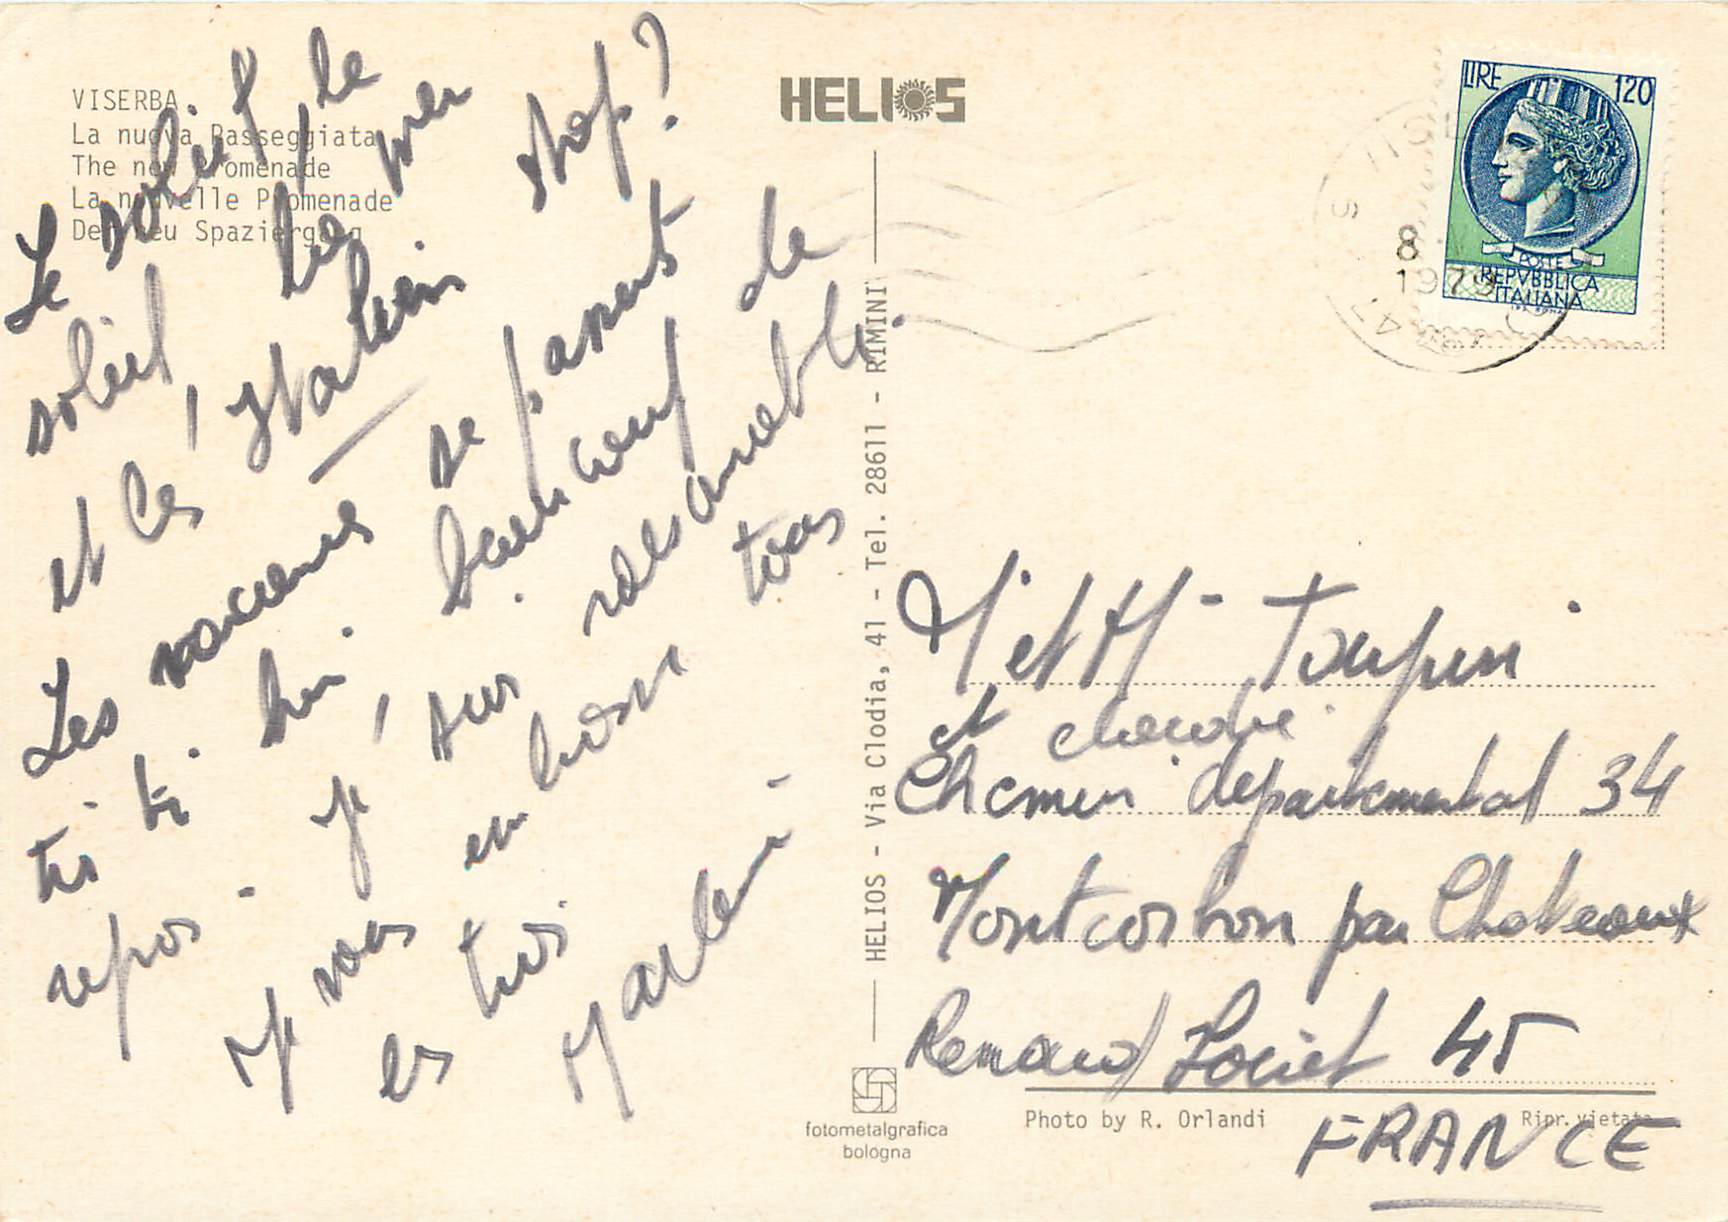 VISERBA
La nuova Passeggiata
The new Promenade
La nouvelle Promenade
Der neu Spaziergang
HELIOS
LIRE 120
POSTE
REPVBBLICA
ITALIANA
8
1979
47
Le soleil, le
soleil, la mer
et les Italiens stop?
Les vacances se passent
très très bien. beaucoup de
repos. Je suis
Je vous embrasse tous
les trois
HELIOS - Via Clodia, 41 - Tel. 28611 - RIMINI
M et Mme Toupin
et
Chemin départemental 34
Montcorbon par Chateaux
Renard Loiret 45
FRANCE
fotometalgrafica
bologna
Photo by R. Orlandi
Ripr. vietata